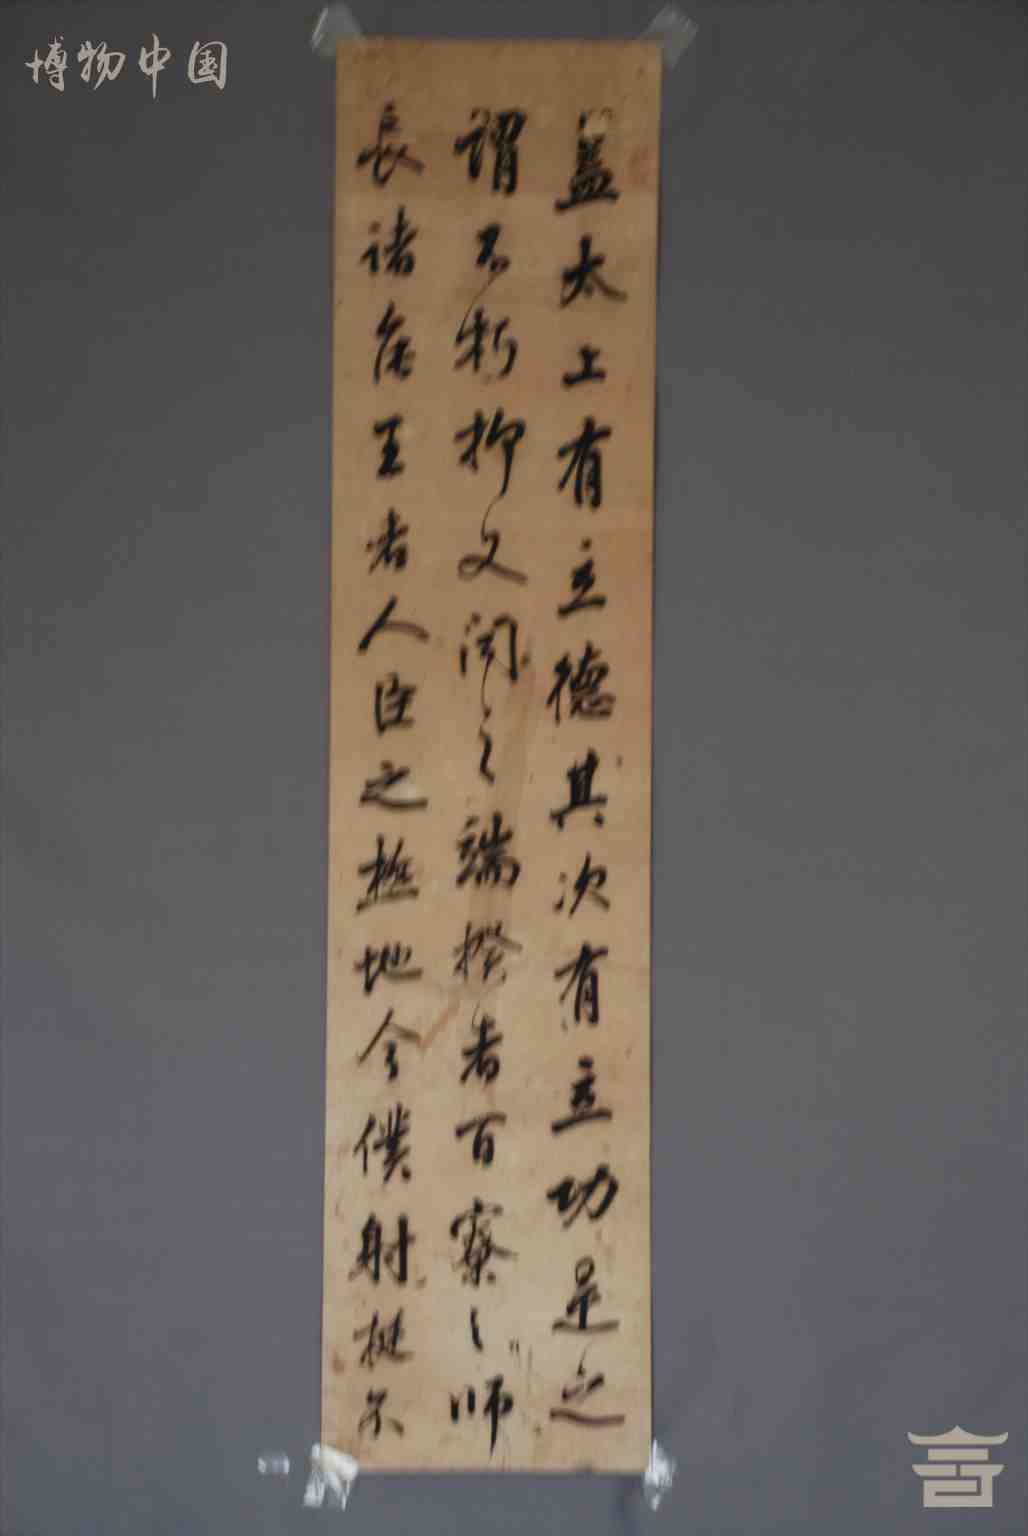 博物中国
蓋太上有立德其次有立功是之
謂不朽抑又聞之端揆者百寮之師
長諸侯王者人臣之極地今僕射挺不